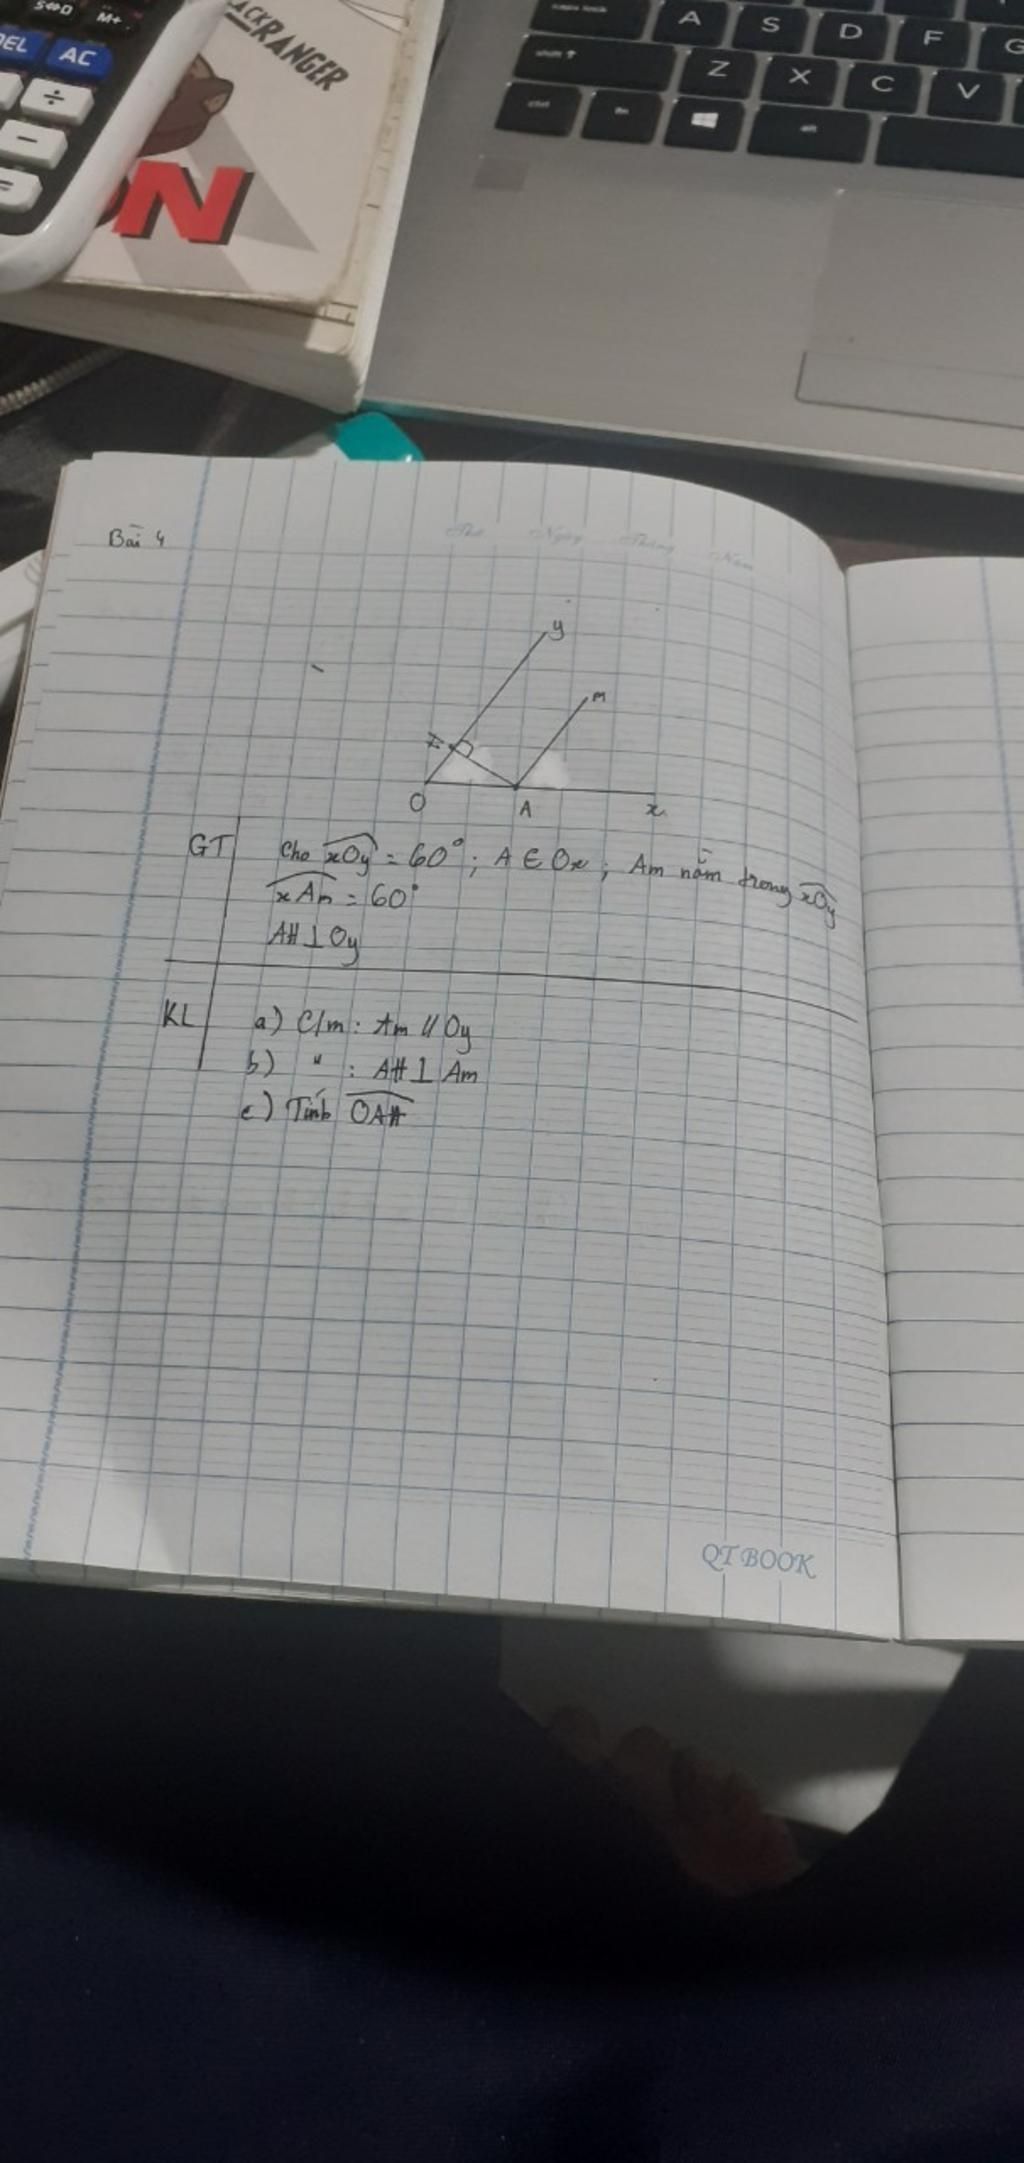 S⇔D
M+
DEL
AC
÷
−
=
ACKRANGER
N
A S D F G
Z X C V
Bài 4
Thứ Ngày Tháng Năm
y
m
H
O
A
x
GT Cho xOy = 60°; A ∈ Ox; Am nằm trong xOy
xAm = 60°
AH ⊥ Oy
KL a) C/m: Am // Oy
b) " : AH ⊥ Am
c) Tính OAH
QT BOOK